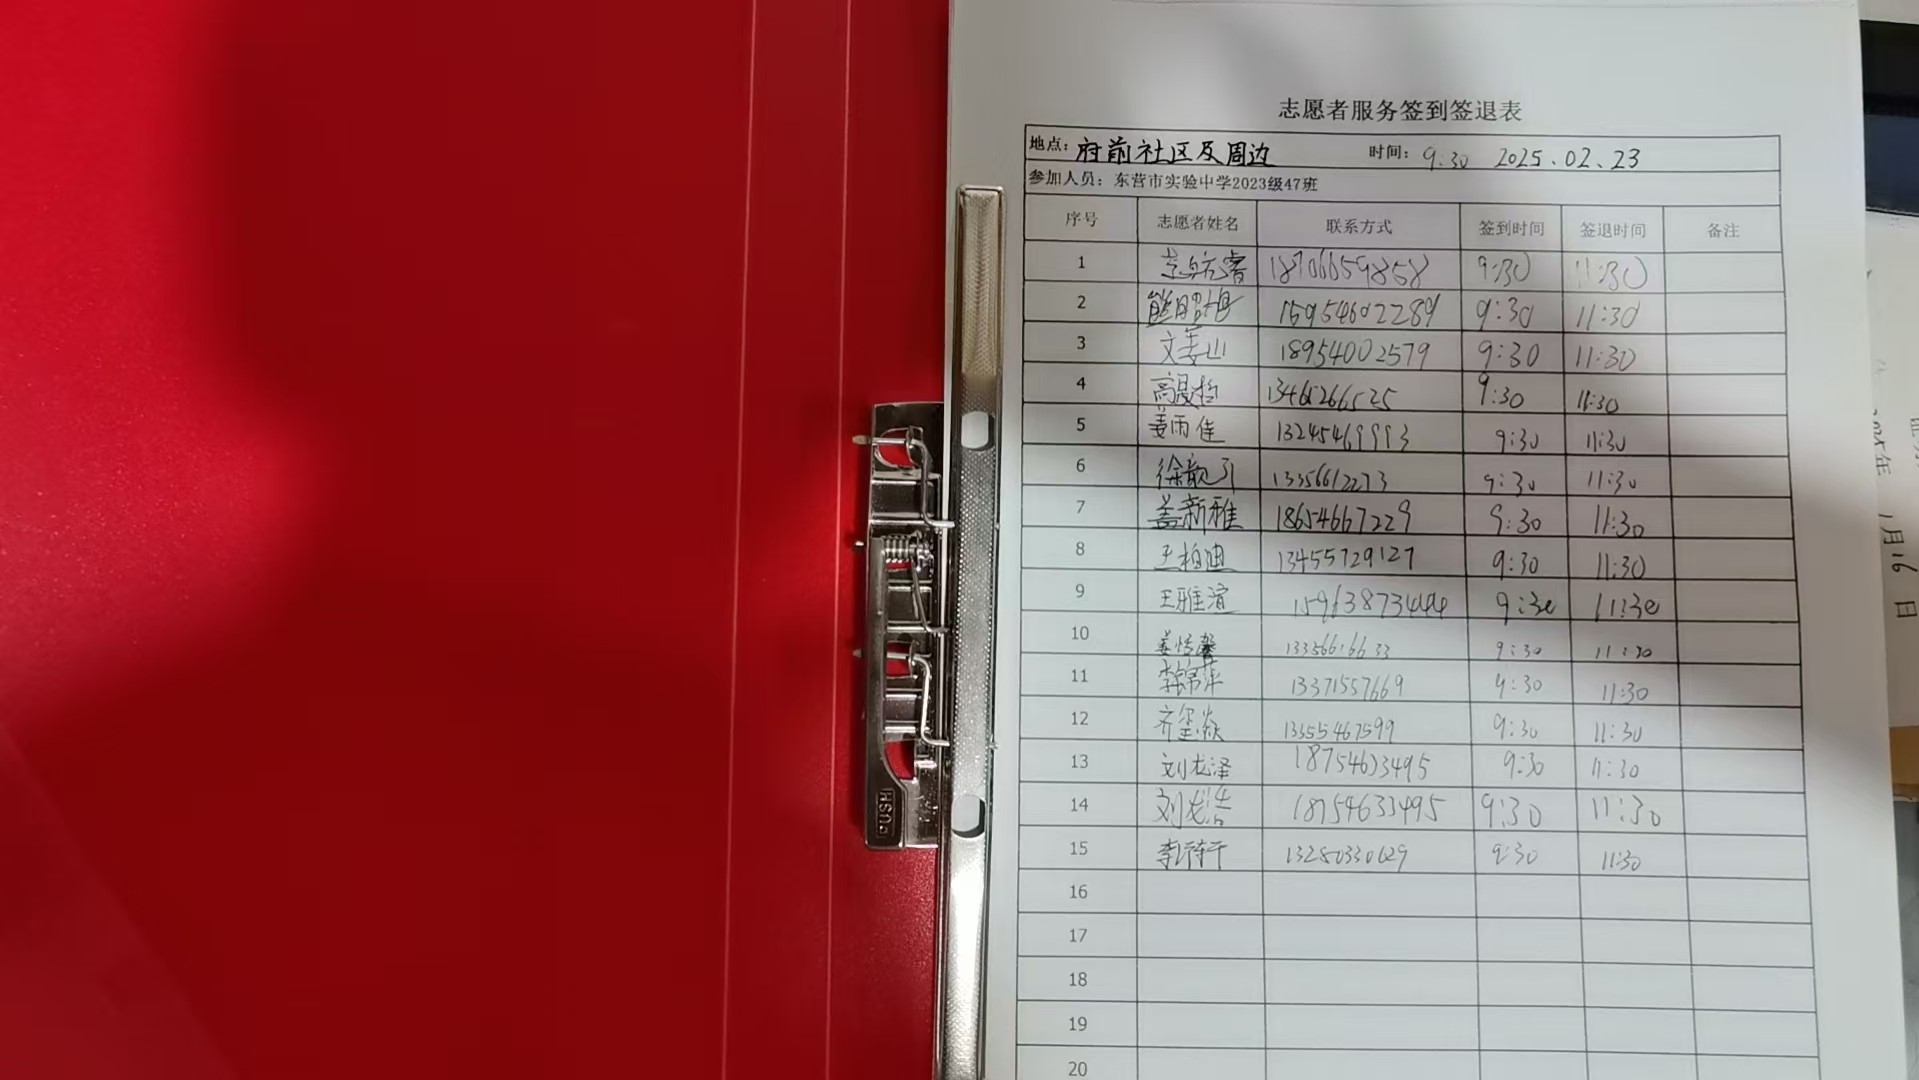 志愿者服务签到签退表
地点：府前社区及周边 时间：9:30 2025.02.23
参加人员：东营市实验中学2023级47班
序号 志愿者姓名 联系方式 签到时间 签退时间 备注
1 18706659858 9:30 11:30
2 15954602289 9:30 11:30
3 文姜山 18954002579 9:30 11:30
4 高晟哲 13465266525 9:30 11:30
5 姜雨佳 13245469993 9:30 11:30
6 13356612273 9:30 11:30
7 盖新雅 18654667229 9:30 11:30
8 王柏迪 13455729127 9:30 11:30
9 王雅渲 15963873444 9:30 11:30
10 13356616633 9:30 11:30
11 13371557669 9:30 11:30
12 齐玺焱 13355467599 9:30 11:30
13 刘龙泽 18754633495 9:30 11:30
14 刘龙浩 18754633495 9:30 11:30
15 13280330629 9:30 11:30
16
17
18
19
20
月16日
HSnp